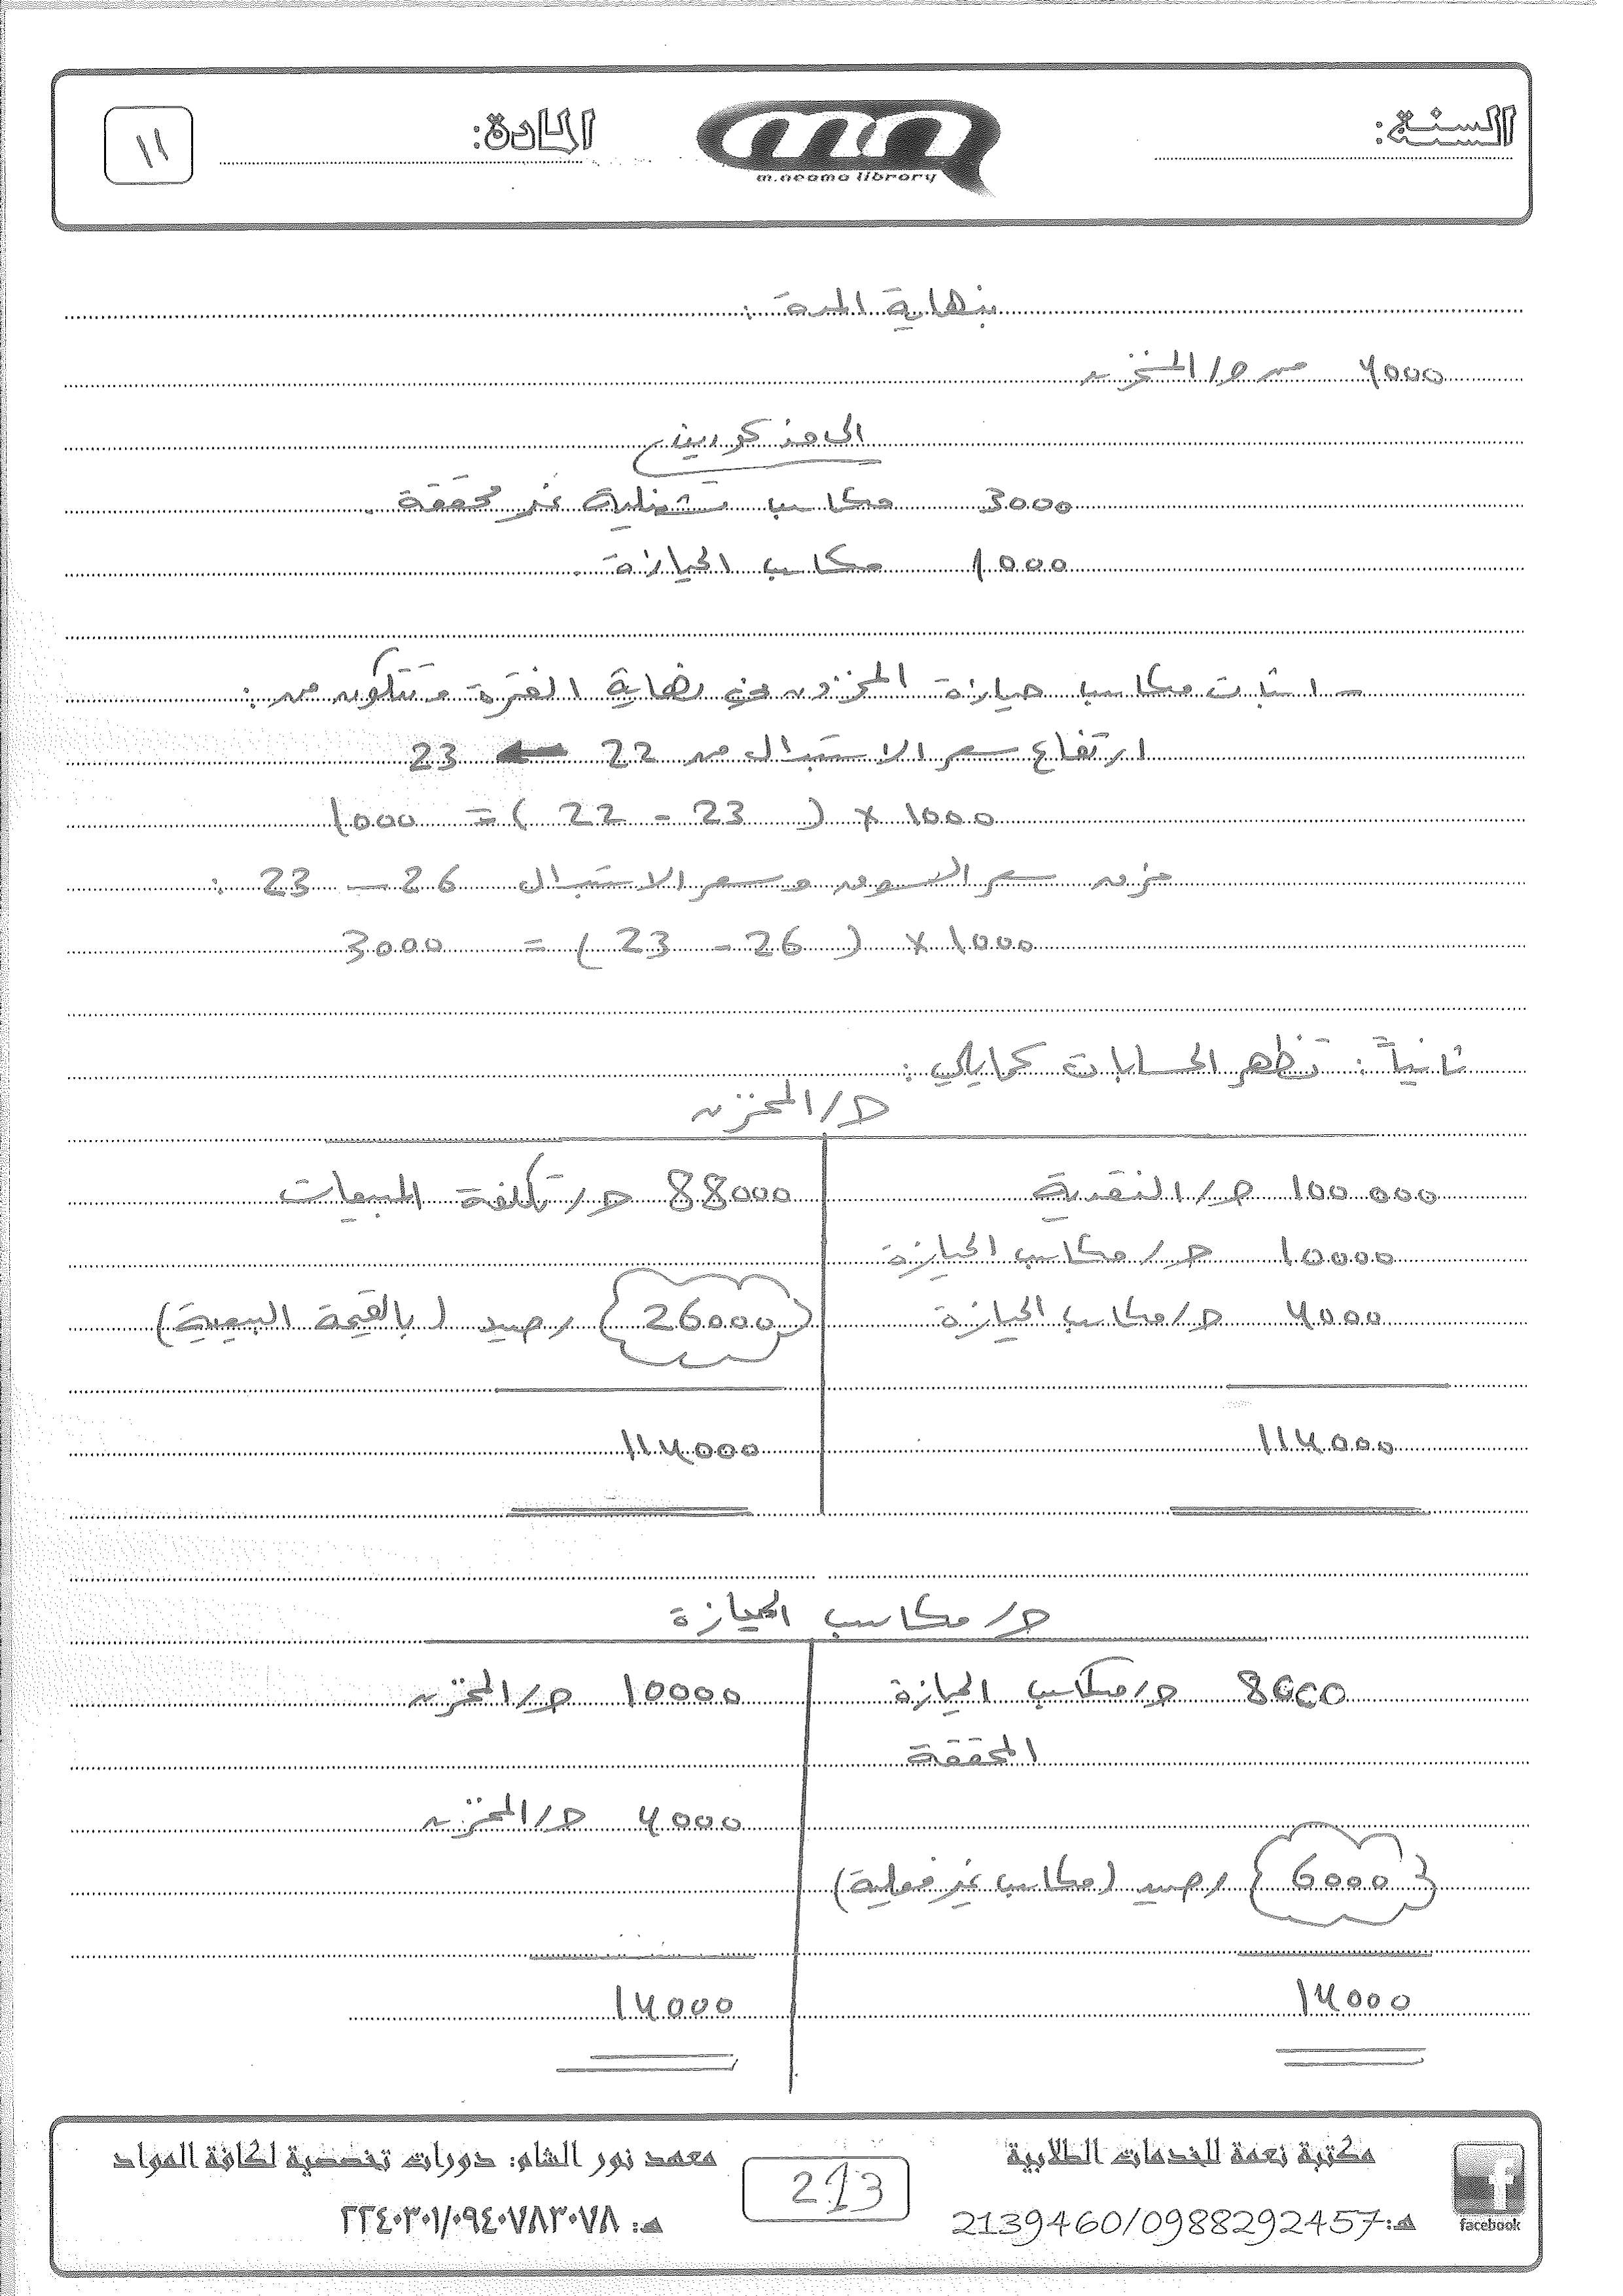 السنة:
m.neama library
المادة:
11
بنهاية المدة:
4000 من ح/ المخزون
الى مذكورين
3000 مكاسب تشغيلية غير محققة.
1000 مكاسب الحيازة.
- اثبات مكاسب حيازة المخزون في نهاية الفترة وتتكون من:
ارتفاع سعر الاستبدال من 22 ← 23
1000 × ( 23 - 22 ) = 1000
فرق سعر السوق وسعر الاستبدال 26 - 23 :
1000 × ( 26 - 23 ) = 3000
ثانياً: تظهر الحسابات كمايلي:
ح/ المخزون
100000 ح/ النقدية
88000 ح/ تكلفة المبيعات
10000 ح/ مكاسب الحيازة
4000 ح/ مكاسب الحيازة
26000 رصيد (بالقيمة البيعية)
114000
114000
ح/ مكاسب الحيازة
8000 ح/ مكاسب الحيازة
10000 ح/ المخزون
المحققة
4000 ح/ المخزون
6000 رصيد (مكاسب غير فعلية)
14000
14000
facebook
مكتبة نعمة للخدمات الطلابية
هـ: 2139460/0988292457
213
معهد نور الشام: دورات تخصصية لكافة المواد
هـ: ٢٢٤٠٣٠١/٠٩٤٠٧٨٣٠٧٨